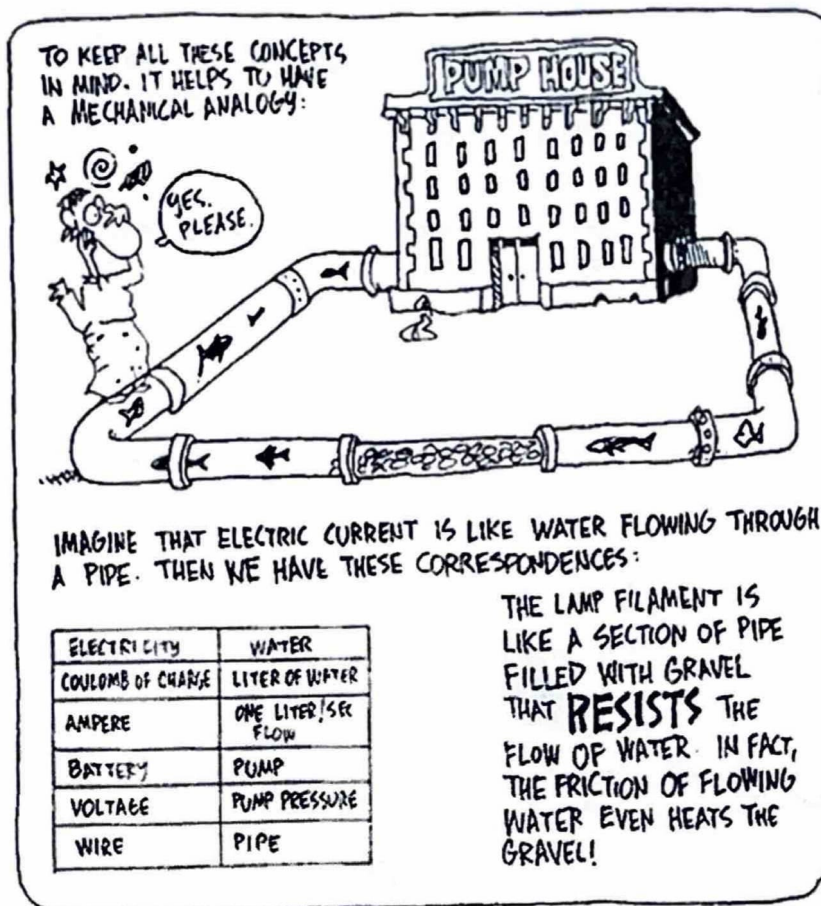 TO KEEP ALL THESE CONCEPTS
IN MIND. IT HELPS TO HAVE
A MECHANICAL ANALOGY:
PUMP HOUSE
YES.
PLEASE.
IMAGINE THAT ELECTRIC CURRENT IS LIKE WATER FLOWING THROUGH
A PIPE. THEN WE HAVE THESE CORRESPONDENCES:
ELECTRICITY WATER
COULOMB OF CHARGE LITER OF WATER
AMPERE ONE LITER/SEC
FLOW
BATTERY PUMP
VOLTAGE PUMP PRESSURE
WIRE PIPE
THE LAMP FILAMENT IS
LIKE A SECTION OF PIPE
FILLED WITH GRAVEL
THAT RESISTS THE
FLOW OF WATER. IN FACT,
THE FRICTION OF FLOWING
WATER EVEN HEATS THE
GRAVEL!